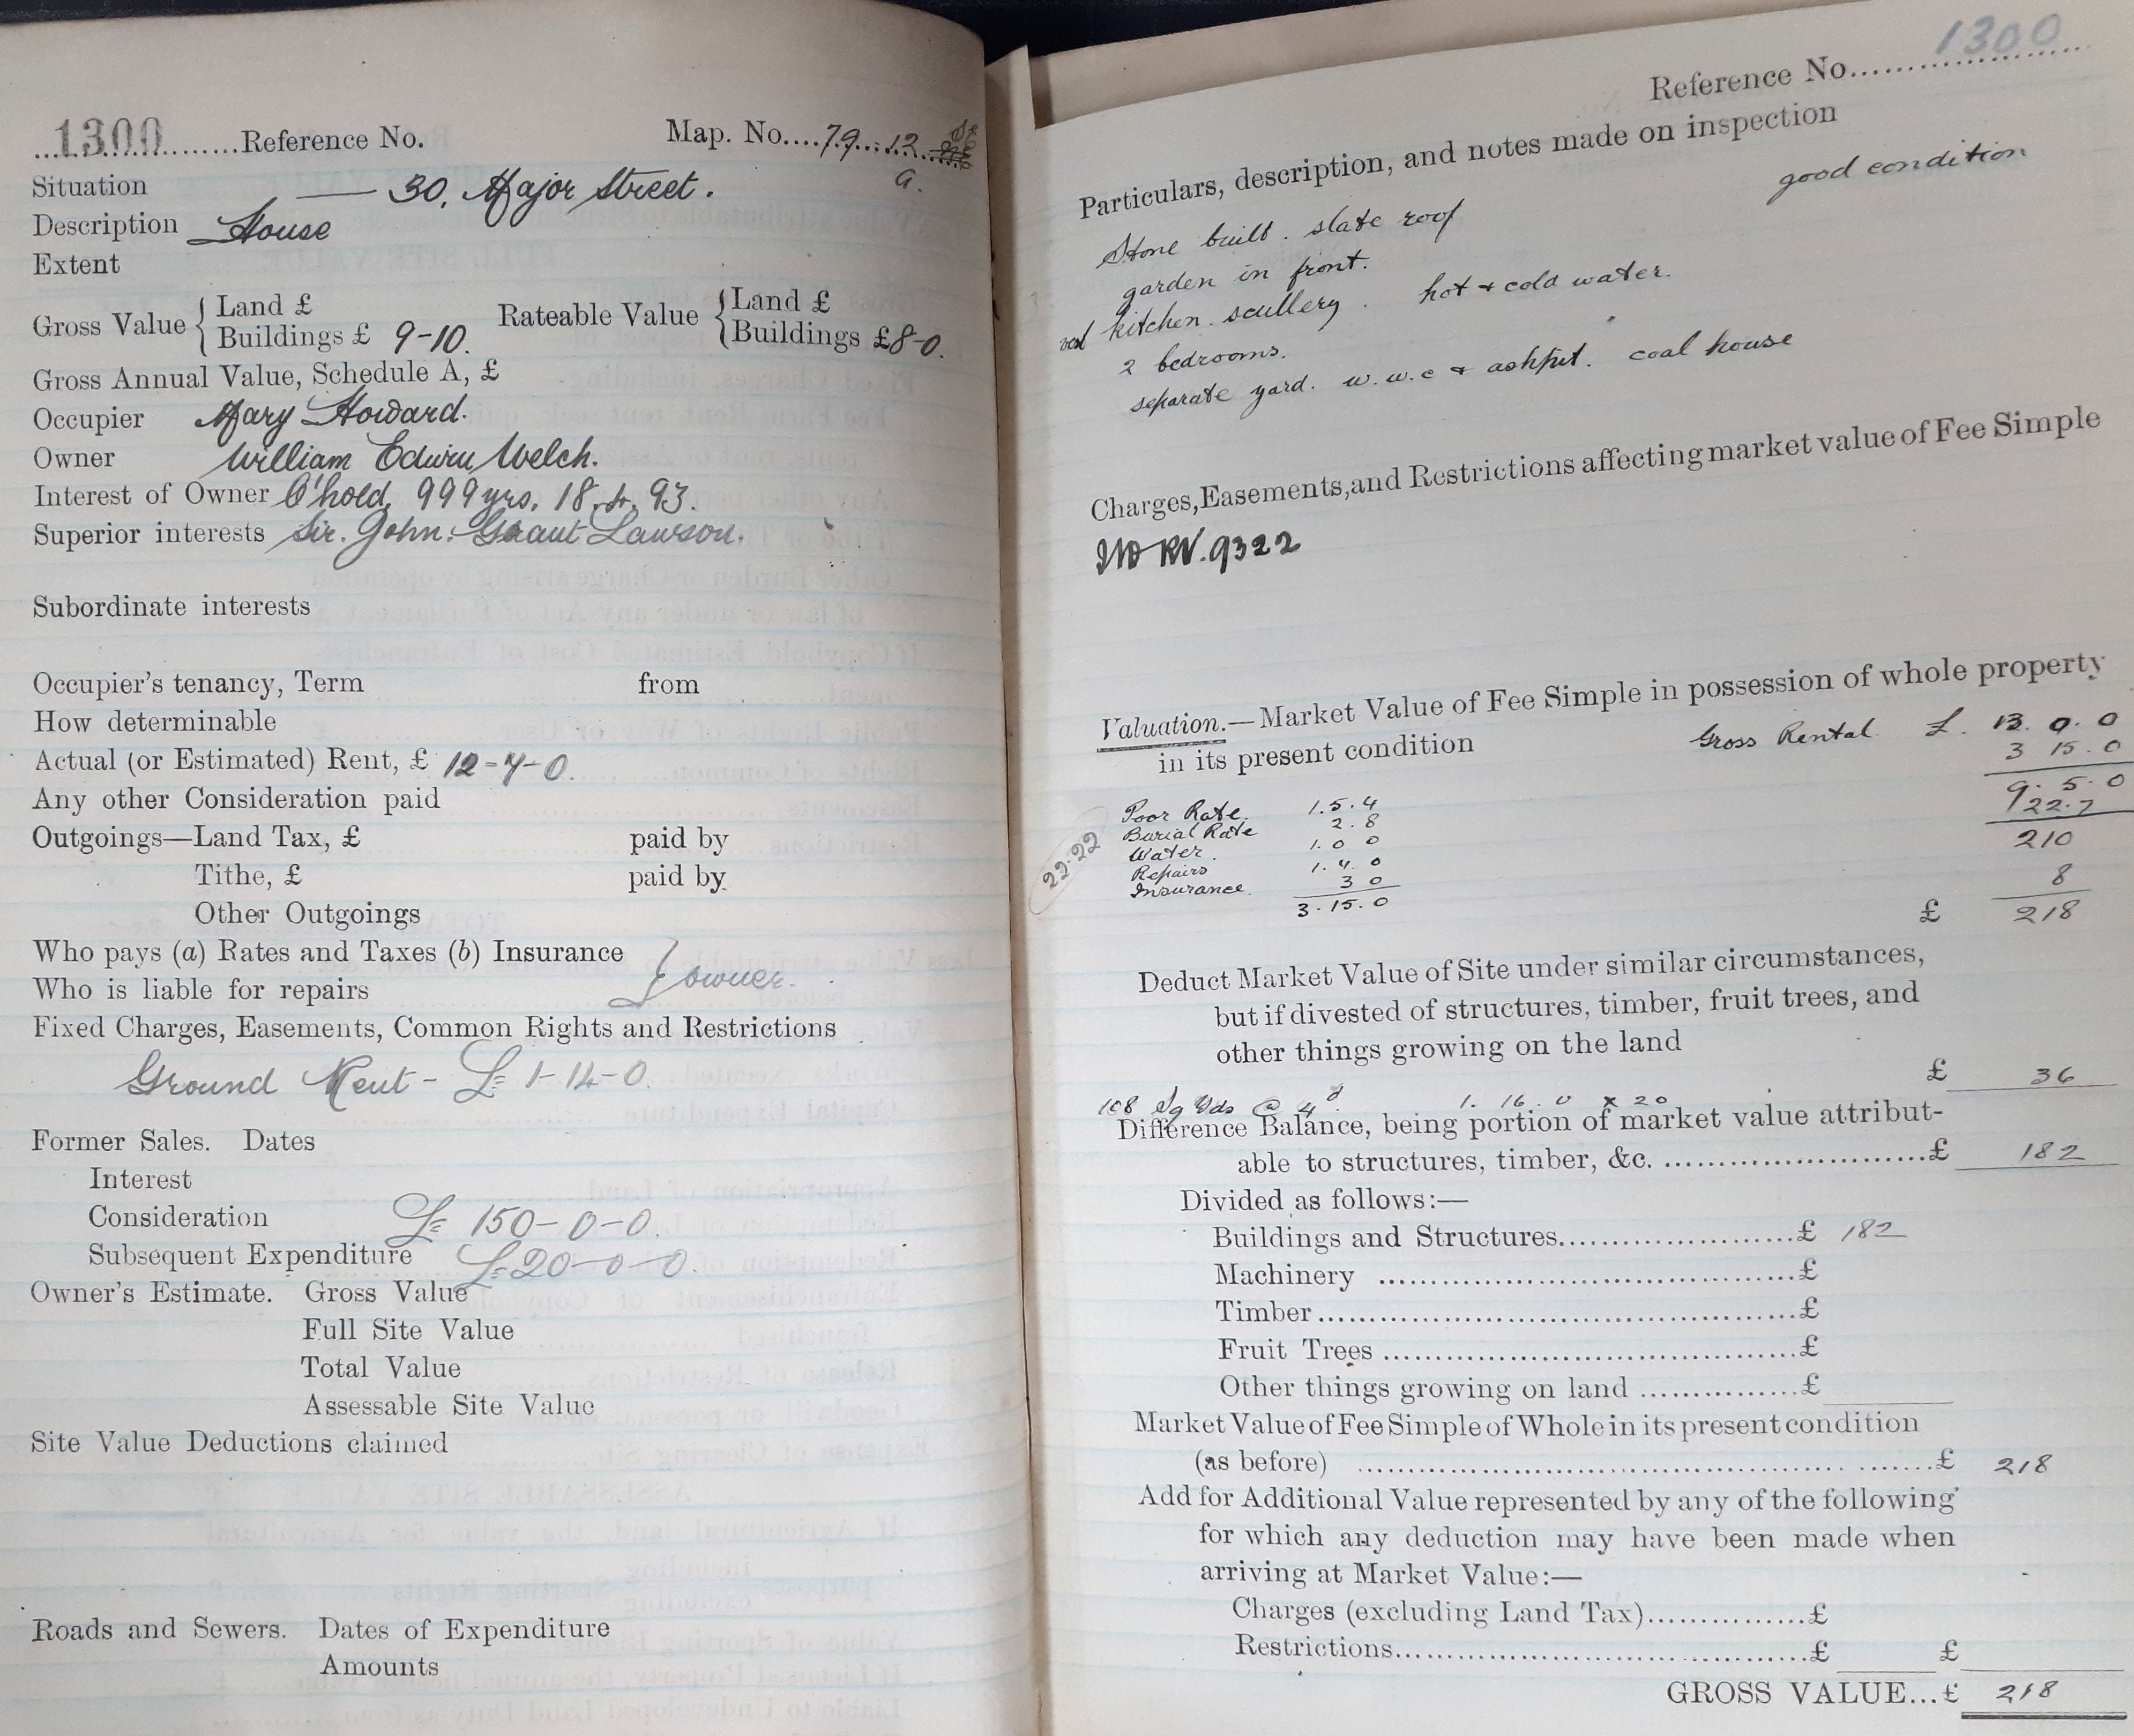 1300 Reference No. Map. No. 79. 12
a.
Situation — 30, Major Street.
Description House
Extent
Gross Value { Land £ Rateable Value { Land £
Buildings £ 9-10. Buildings £8-0.
Gross Annual Value, Schedule A, £
Occupier Mary Howard.
Owner William Edwin Welch.
Interest of Owner L'hold, 999 yrs, 18.4.93.
Superior interests Sir. John. Grant Lawson.
Subordinate interests
Occupier's tenancy, Term from
How determinable
Actual (or Estimated) Rent, £ 12-4-0.
Any other Consideration paid
Outgoings—Land Tax, £ paid by
Tithe, £ paid by
Other Outgoings
Who pays (a) Rates and Taxes (b) Insurance } owner.
Who is liable for repairs
Fixed Charges, Easements, Common Rights and Restrictions
Ground Rent - £ 1-14-0.
Former Sales. Dates
Interest
Consideration £ 150-0-0.
Subsequent Expenditure £ 20-0-0.
Owner's Estimate. Gross Value
Full Site Value
Total Value
Assessable Site Value
Site Value Deductions claimed
Roads and Sewers. Dates of Expenditure
Amounts
Reference No. 1300
Particulars, description, and notes made on inspection
good condition
Stone built. slate roof
garden in front.
kitchen. scullery. hot + cold water.
2 bedrooms.
separate yard. w.w.c + ashpit. coal house
Charges, Easements, and Restrictions affecting market value of Fee Simple
NO RV. 9322
Valuation.—Market Value of Fee Simple in possession of whole property
in its present condition Gross Rental. £. 13. 0. 0
3 15. 0
9. 5. 0
22.7
Poor Rate. 1. 5. 4
Burial Rate 2. 8
Water. 1. 0 0 210
Repairs 1. 4. 0
Insurance. 3 0 8
3. 15. 0 £ 218
22.22
Deduct Market Value of Site under similar circumstances,
but if divested of structures, timber, fruit trees, and
other things growing on the land
£ 36
108 Sq Yds @ 4d 1. 16. 0 x 20
Difference Balance, being portion of market value attribut-
able to structures, timber, &c. £ 182
Divided as follows:—
Buildings and Structures £ 182
Machinery £
Timber £
Fruit Trees £
Other things growing on land £
Market Value of Fee Simple of Whole in its present condition
(as before) £ 218
Add for Additional Value represented by any of the following
for which any deduction may have been made when
arriving at Market Value:—
Charges (excluding Land Tax) £
Restrictions £ £
GROSS VALUE...£ 218